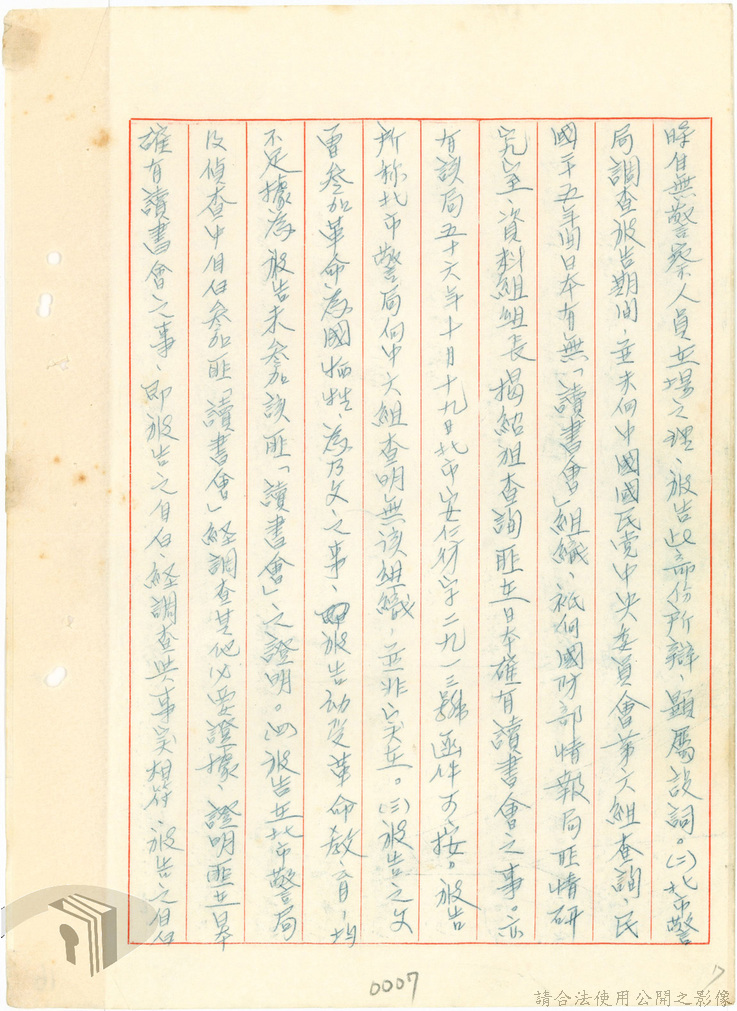 時自無警察人員在場之理、被告此部份所辯、顯屬設詞。㈡北市警
局調查被告期間、並未向中國國民党中央委員會第六組查詢、民
國卅五年間日本有無「讀書會」組織、祇向國防部情報局匪情研
究室、資料組組長楊紹祖查詢匪在日本確有讀書會之事。亦
有該局五十六年十月十九日北市安仁狩字二九一三號函件可按。被告
所称北市警局向中六組查明無该組織、並非实在。㈢被告之父
曾参加革命為國牺牲、為乃父之事、被告幼受革命教育、均
不足據為被告未参加該匪「讀書會」之證明。㈣被告在北市警局
及偵查中自白参加匪「讀書會」経調查其他必要證據、證明匪在日
確有讀書會之事、即被告之自白、経調查與事実相符、被告之自白
0007
17
請合法使用公開之影像